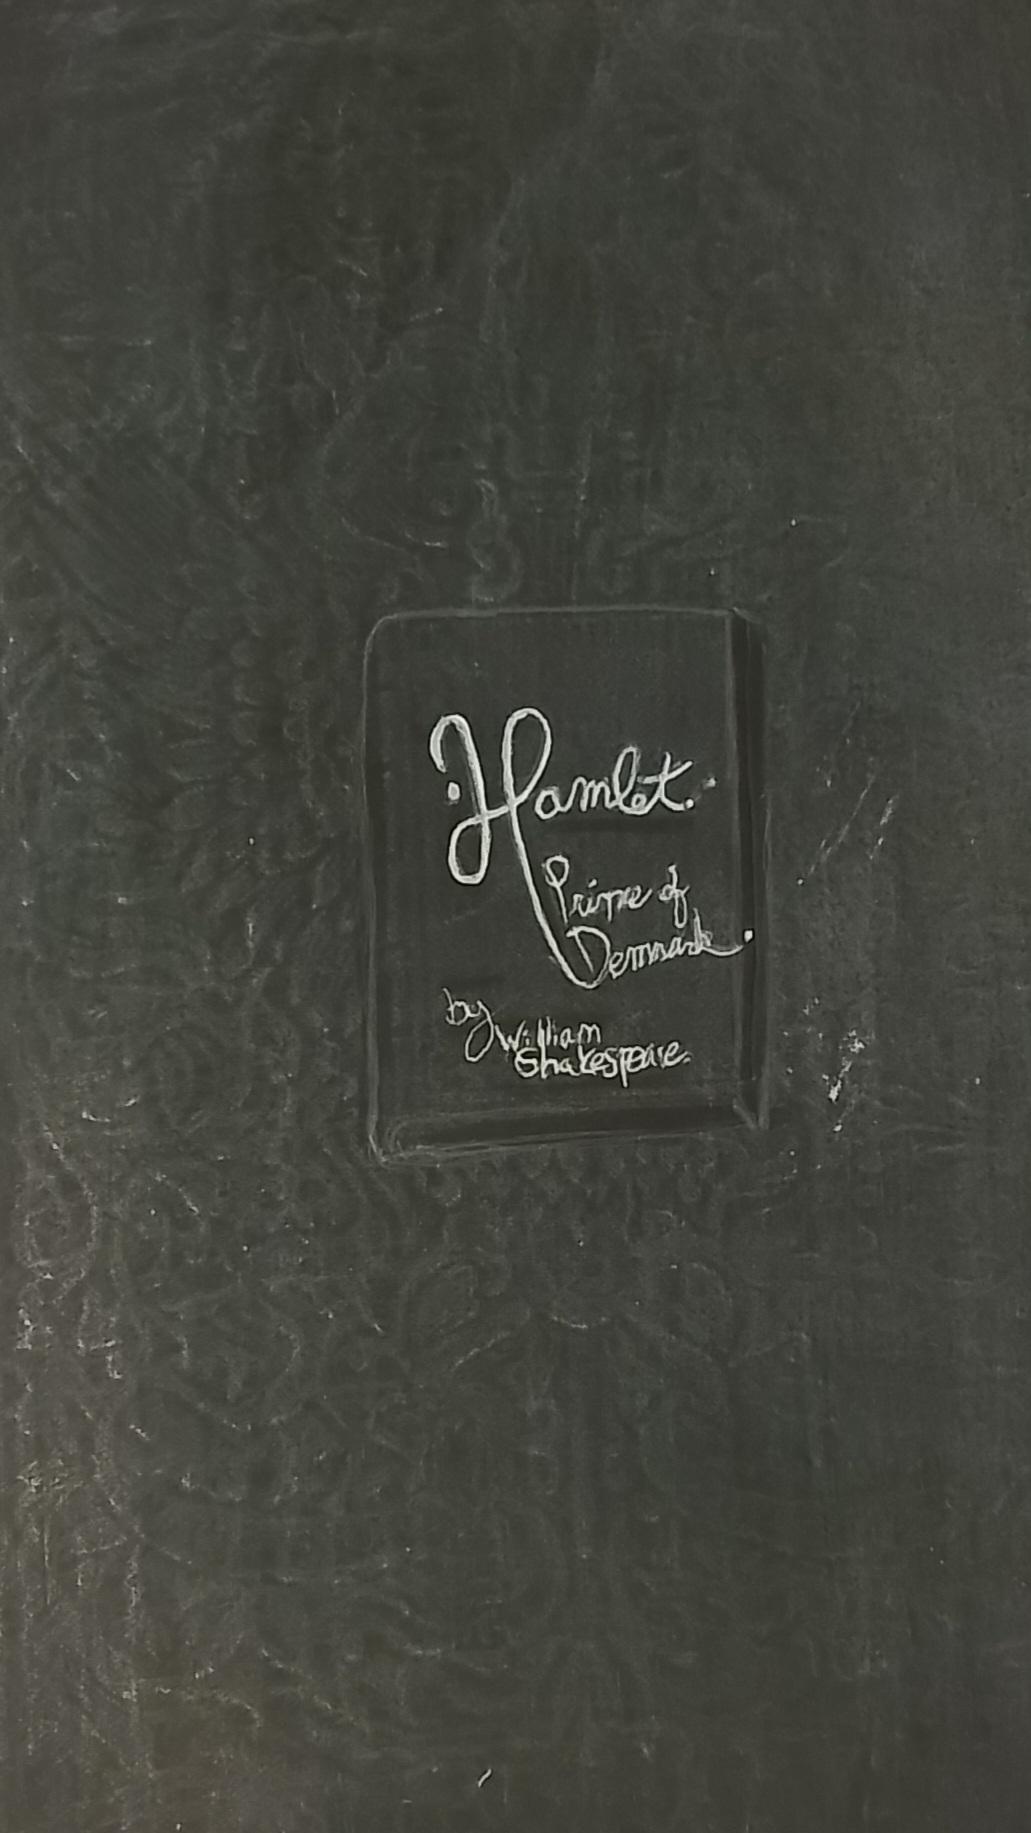 Hamlet.
Prince of
Denmark.
by
William
Shakespeare.